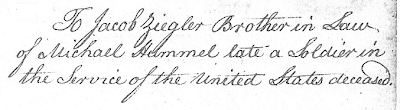 To Jacob Ziegler Brother in Law
of Michael Hummel late a Soldier in
the Service of the United States deceased.